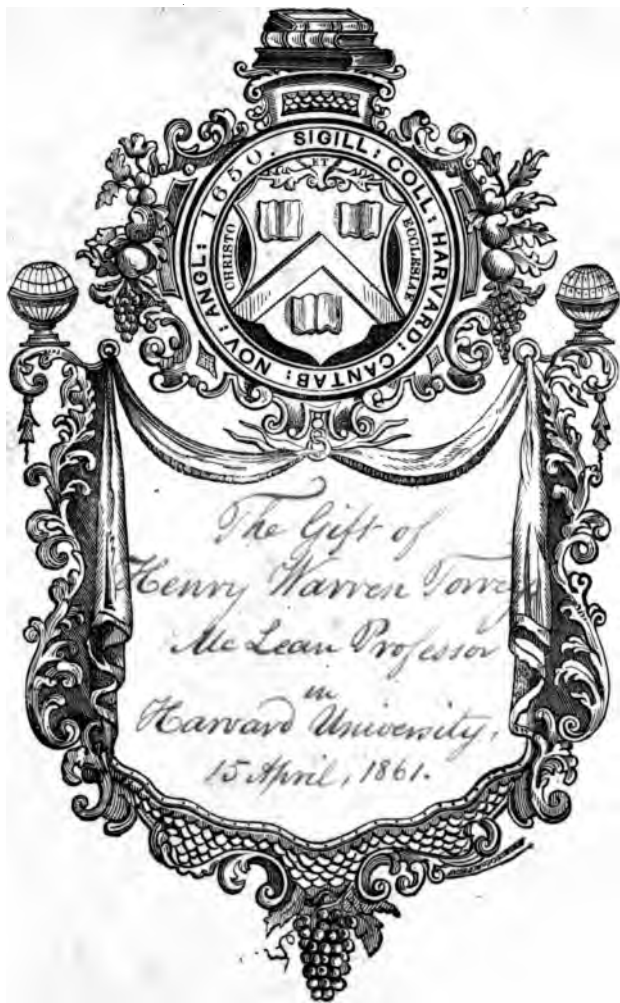 SIGILL : COLL : HARVARD : CANTAB : NOV : ANGL : 1650.
CHRISTO
ET
ECCLESIAE
The Gift of
Henry Warren Torrey
Mc Lean Professor
in
Harvard University,
15 April, 1861.